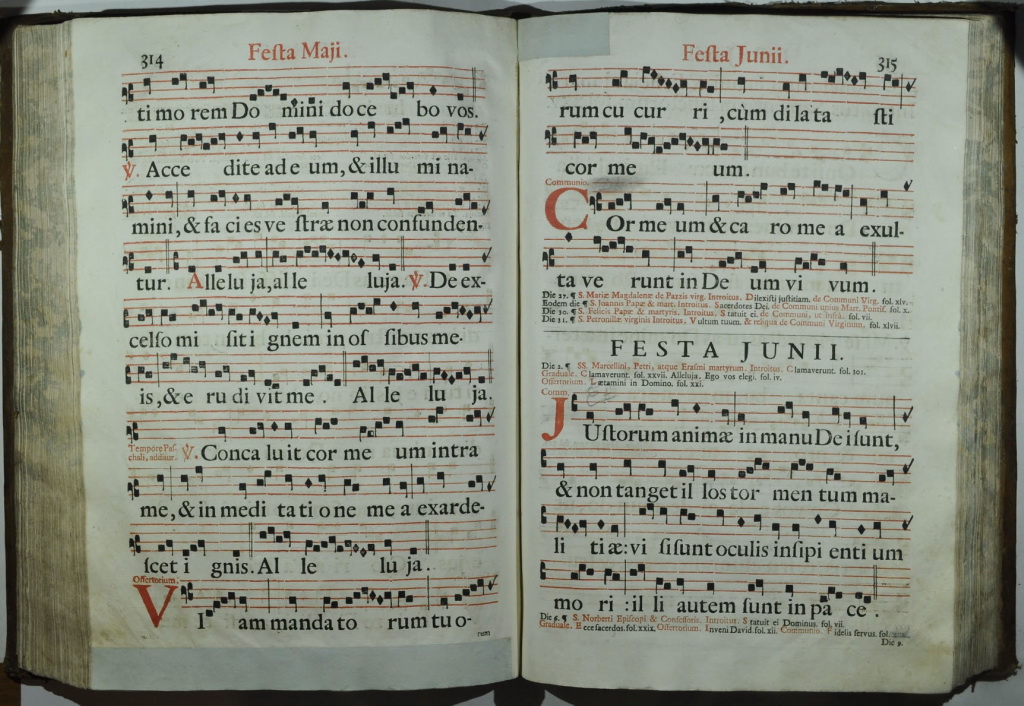 314
Feſta Maji.
ti mo rem Do mini do ce bo vos.
℣. Acce dite ad e um, & illu mi na-
mini, & fa ci es ve ſtræ non confunden-
tur. Allelu ja, al le luja. ℣. De ex-
celſo mi ſit i gnem in oſ ſibus me-
is, & e ru di vit me. Al le lu ja.
Tempore Paſ-
chali, additur.
℣. Conca lu it cor me um intra
me, & in medi ta ti o ne me a exarde-
ſcet i gnis. Al le lu ja..
Offertorium.
VI am manda to rum tu o-
rum
Feſta Junii.
315
rum cu cur ri, cùm di la ta ſti
cor me um.
Communio.
COr me um & ca ro me a exul-
ta ve runt in De um vi vum.
Die 27. ¶ S. Mariæ Magdalenæ de Pazzis virg. Introitus. Dilexiſti juſtitiam. de Communi Virg. fol. xlv.
Eodem die ¶ S. Joannis Papæ & mart. Introitus. Sacerdotes Dei. de Communi unius Mart. Pontif. fol. x.
Die 30. ¶ S. Felicis Papæ & martyris. Introitus. Statuit ei. de Communi, ut infrà. fol. vii.
Die 31. ¶ S. Petronillæ virginis Introitus. Vultum tuum. & reliqua de Communi Virginum. fol. xlvii.
FESTA JUNII.
Die 2. ¶ SS. Marcellini, Petri, atque Eraſmi martyrum. Introitus. Clamaverunt. fol. 101.
Graduale. Clamaverunt. fol. xxvii. Alleluja. Ego vos elegi. fol. iv.
Offertorium. Lætamini in Domino. fol. xxi.
Comm.
JUſtorum animæ in manu De i ſunt,
& non tanget il los tor men tum ma-
li tiæ: vi ſi ſunt oculis inſipi enti um
mo ri: il li autem ſunt in pa ce.
Die 6. ¶ S. Norberti Epiſcopi & Confeſſoris. Introitus. Statuit ei Dominus. fol. vii.
Graduale. Ecce ſacerdos. fol. xxix. Offertorium. Inveni David. fol. xii. Communio. Fidelis ſervus. fol.
Die 9.